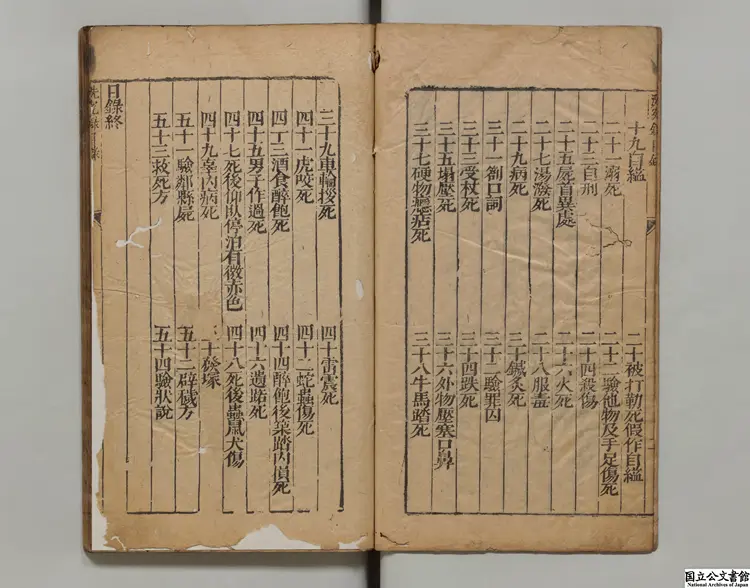 十九自縊　二十被打勒死假作自縊
二十一溺死　二十二驗他物及手足傷死
二十三自刑　二十四殺傷
二十五屍首異處　二十六火死
二十七湯潑死　二十八服毒
二十九病死　三十鍼灸死
三十一劄口詞　三十二驗罪囚
三十三受杖死　三十四跌死
三十五塌壓死　三十六外物壓塞口鼻
三十七硬物癮痁死　三十八牛馬踏死
三十九車輪拶死　四十雷震死
四十一虎咬死　四十二蛇蟲傷死
四十三酒食醉飽死　四十四醉飽後築踏內損死
四十五男子作過死　四十六遺路死
四十七死後仰臥停泊有微赤色　四十八死後蟲鼠犬傷
四十九辜內病死　十發塚
五十一驗鄰縣屍　五十二辟穢方
五十三救死方　五十四驗狀說
目錄終
国立公文書館
National Archives of Japan